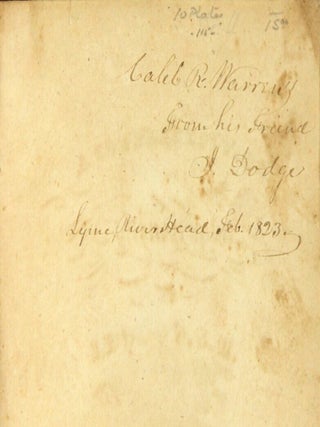 10 Plates
15
Caleb R. Warren's
From his Friend
J. Dodge
Lyme, River Head, Feb. 1823.